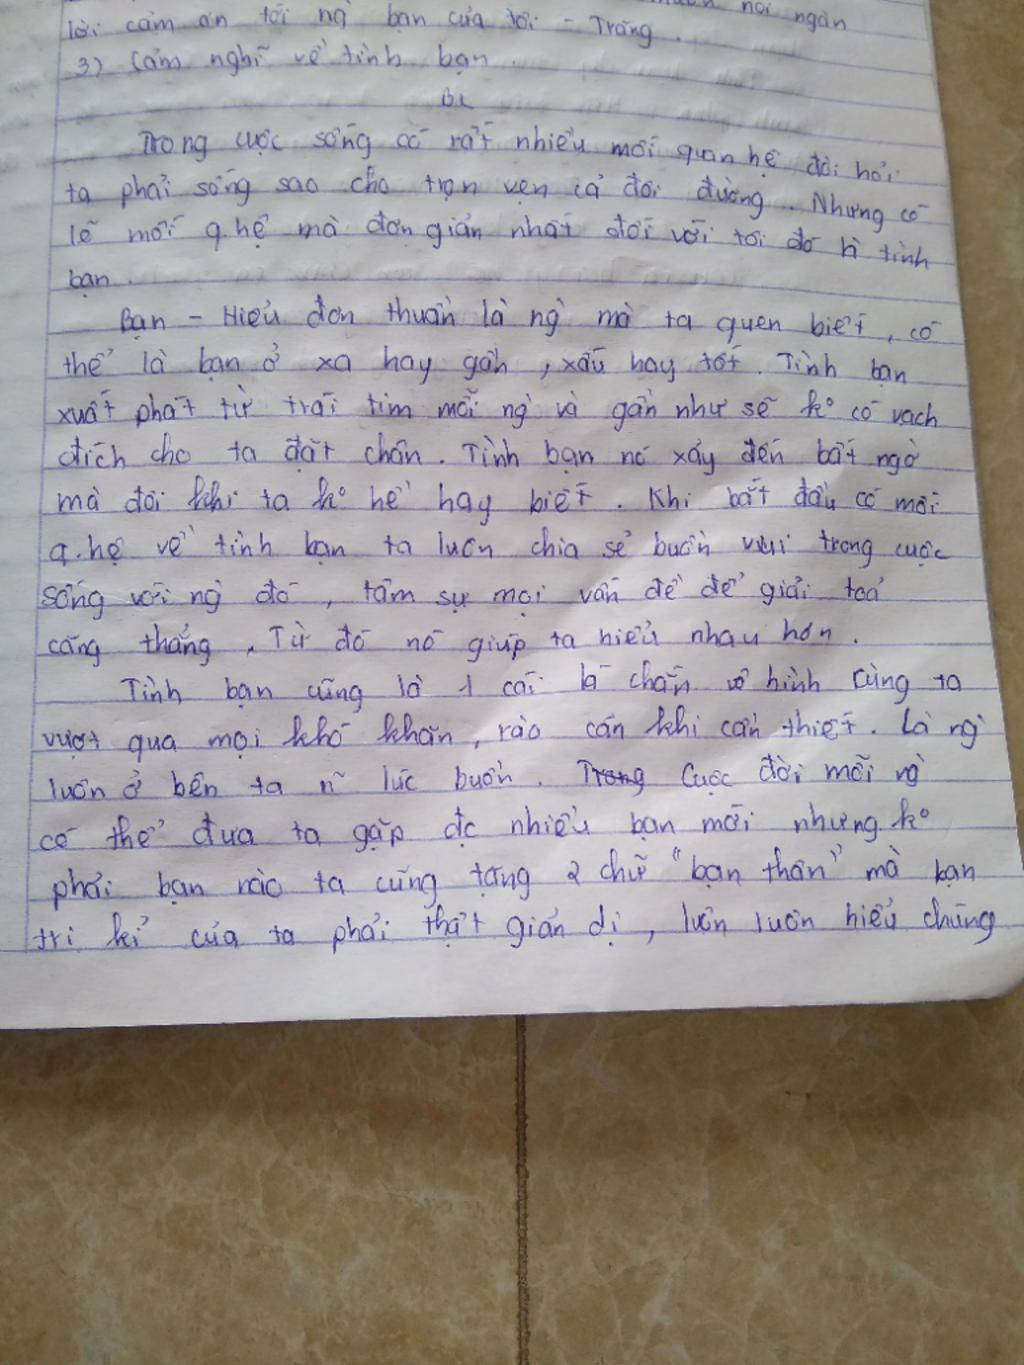 nói ngàn
lời cảm ơn tới ng̀ bạn của tôi - Trang.
3) Cảm nghĩ về tình bạn.
BL
Trong cuộc sống có rất nhiều mối quan hệ đòi hỏi
ta phải sống sao cho trọn vẹn cả đôi đường. Nhưng có
lẽ mối q.hệ mà đơn giản nhất đối với tôi đó là tình
bạn.
Bạn - Hiểu đơn thuần là ng̀ mà ta quen biết, có
thể là bạn ở xa hay gần, xấu hay tốt. Tình bạn
xuất phát từ trái tim mỗi ng̀ và gần như sẽ k° có vạch
đích cho ta đặt chân. Tình bạn nó xảy đến bất ngờ
mà đôi khi ta k° hề hay biết. Khi bắt đầu có mối
q.hệ về tình bạn ta luôn chia sẻ buồn vui trong cuộc
sống với ng̀ đó, tâm sự mọi vấn đề để giải toả
căng thẳng. Từ đó nó giúp ta hiểu nhau hơn.
Tình bạn cũng là 1 cái lá chắn vô hình cùng ta
vượt qua mọi khó khăn, rào cản khi cần thiết. Là ng̀
luôn ở bên ta n~ lúc buồn. Trong Cuộc đời mỗi ng̀
có thể đưa ta gặp đc nhiều bạn mới nhưng k°
phải bạn nào ta cũng tặng 2 chữ "bạn thân" mà bạn
tri kỉ của ta phải thật giản dị, luôn luôn hiểu chúng